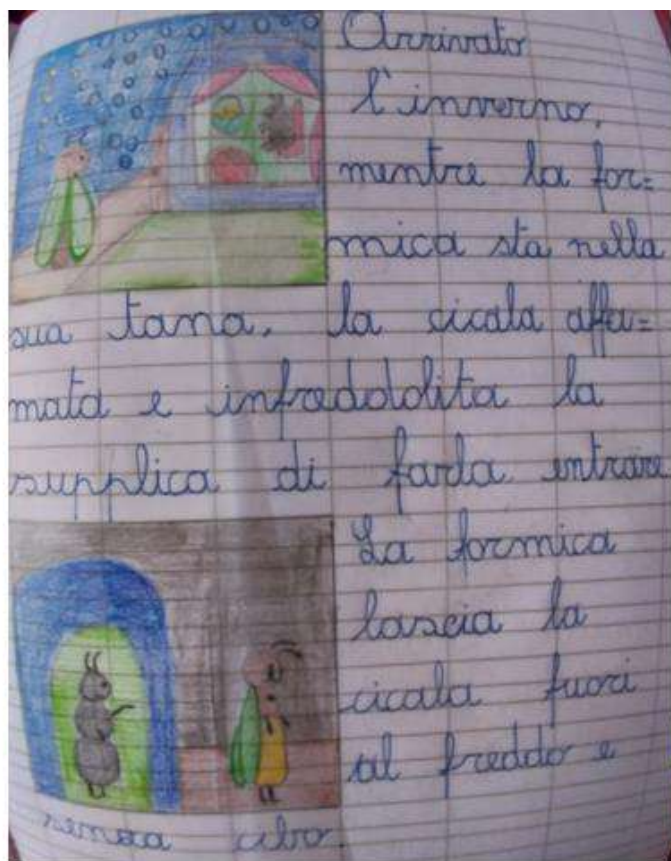 Arrivato
l'inverno,
mentre la for=
mica sta nella
sua tana, la cicala affa=
mata e infreddolita la
supplica di farla entrare
La formica
lascia la
cicala fuori
al freddo e
senza cibo.